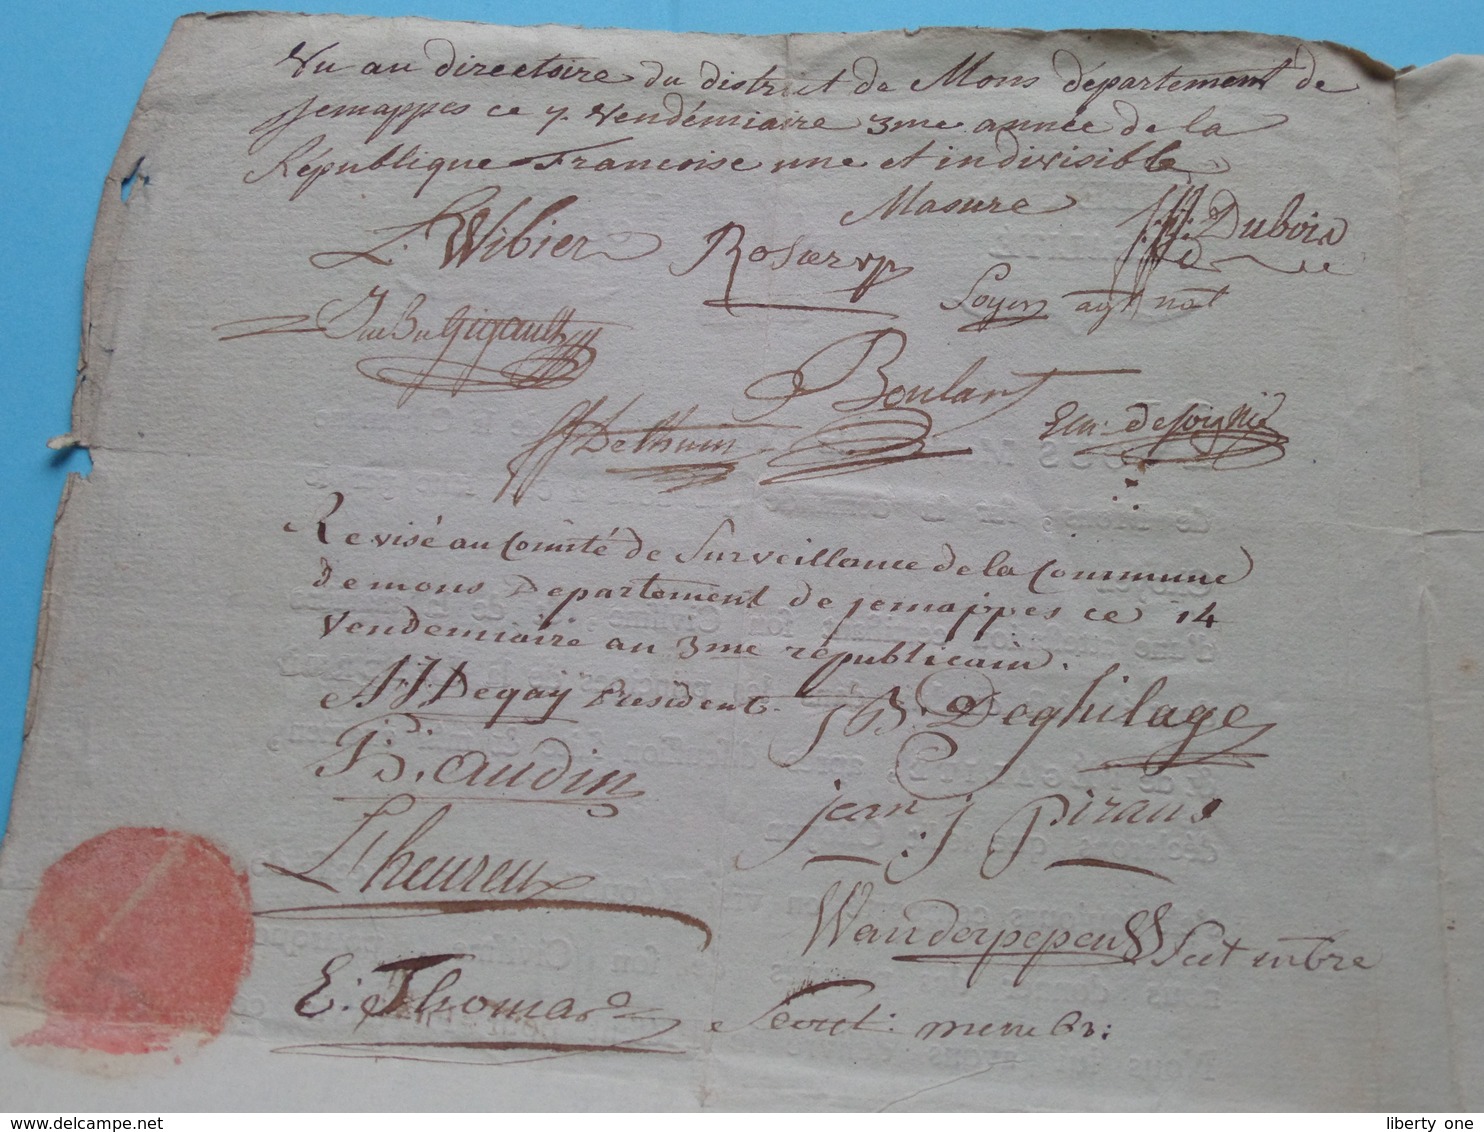 Vu au directoire du district de Mons département de
Jemappes ce 7. Vendémiaire 3me année de la
République Francoise une et indivisible
Masure
L. Wibier Rosier vp J.f.f. Dubois
Gigault agt nat
Boulant
Delhuin
Revisé au Comité de Surveillance de la Commune
de mons Departement de jemappes ce 14
Vendemiaire au 3me républicain.
A J Degay President. J B. Deghilage
B. Caudin jean j piraux
Lheureux
Wanderpepen Sect mbre
E. Thomas Secret: membr:
www.delcampe.net
liberty one